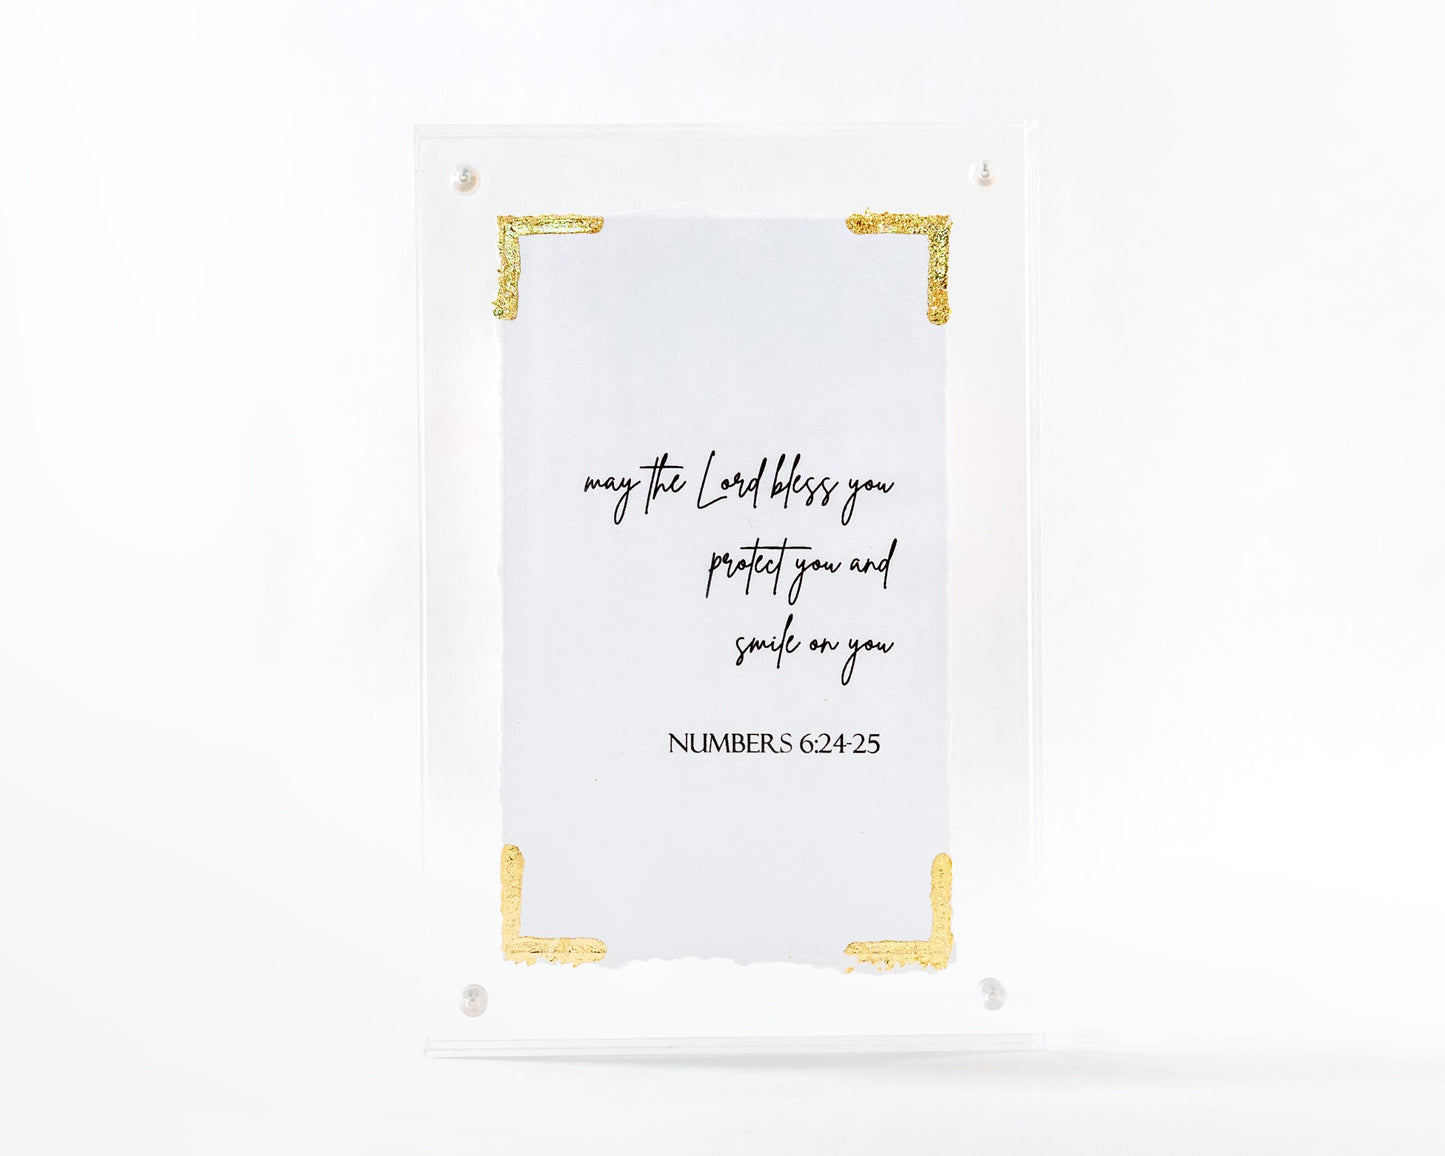 may the Lord bless you
protect you and
smile on you
NUMBERS 6:24-25